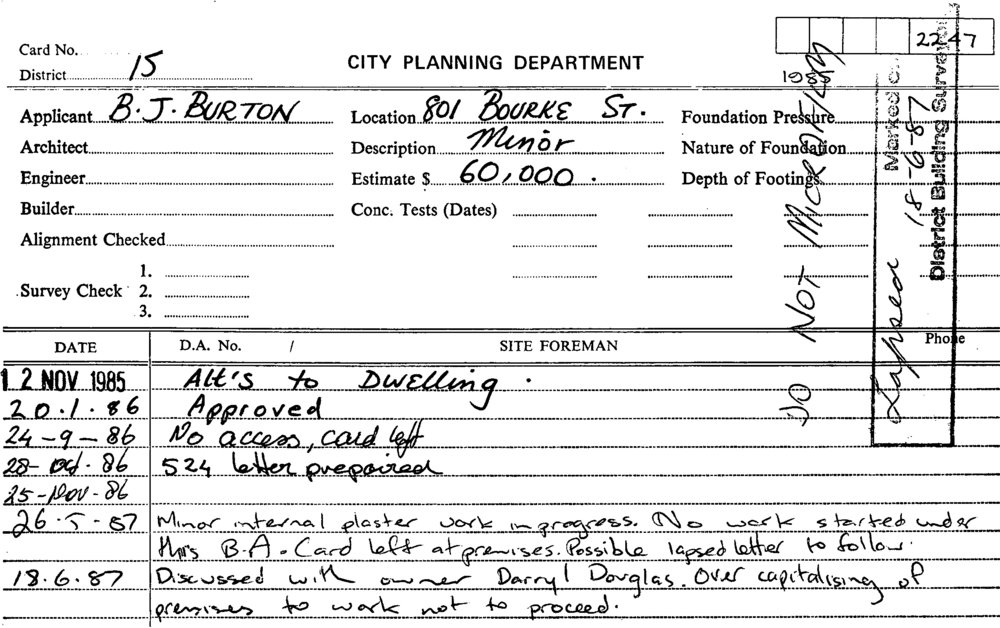 Card No.
District 15
CITY PLANNING DEPARTMENT
2247
Applicant B.J. BURTON
Location 801 BOURKE ST.
Foundation Pressure
Architect
Description Minor
Nature of Foundation
Engineer
Estimate $ 60,000.
Depth of Footings
Builder
Conc. Tests (Dates)
Alignment Checked
Survey Check
1.
2.
3.
DO NOT MICROFILM
Marked
Lapsed 18-6-87
District Building Surveyor
DATE D.A. No. / SITE FOREMAN Phone
12 NOV 1985 Alt's to Dwelling.
20.1.86 Approved
24-9-86 No access, card left
28-Oct-86 524 letter prepaired
25-Nov-86
26-5-87 Minor internal plaster work in progress. No work started under
this B.A. Card left at premises. Possible lapsed letter to follow.
18.6.87 Discussed with owner Darryl Douglas. Over capitalising of
premises to work not to proceed.